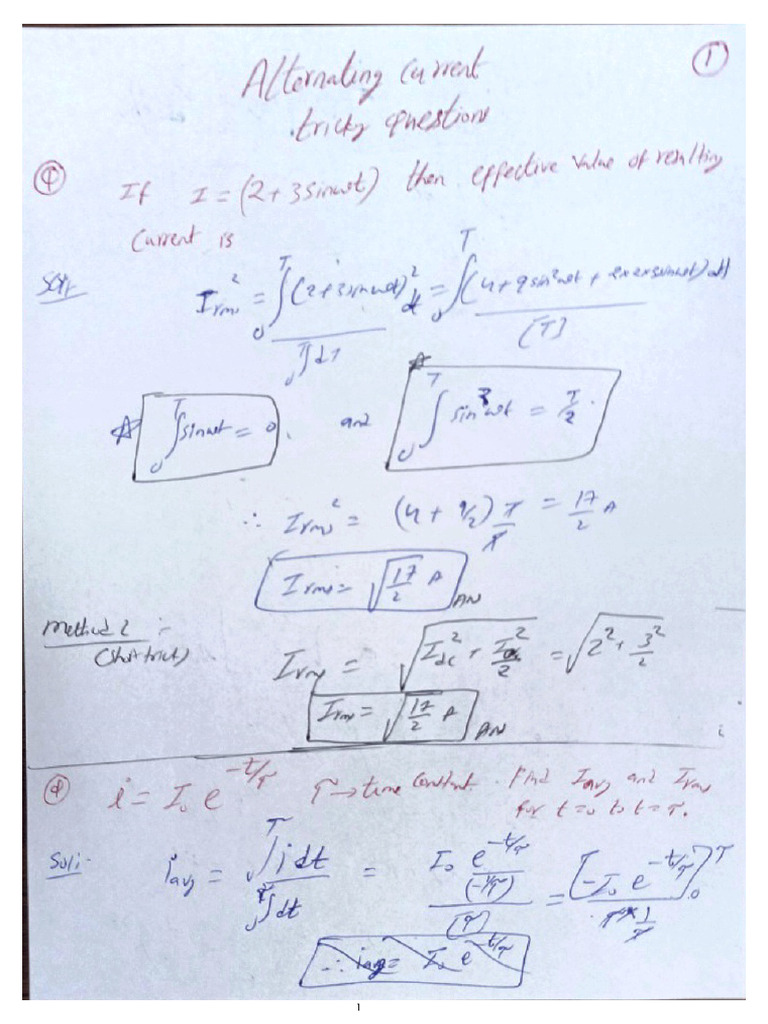 ①
Alternating current
tricky questions
Q If I = (2 + 3sinωt) then effective value of resulting
current is
Sol:- I²rms = ∫₀ᵀ (2+3sinωt)² dt / ∫₀ᵀ dt = ∫₀ᵀ (4+9sin²ωt + 2×2×3sinωt) dt / [T]
∫₀ᵀ sinωt = 0, and ∫₀ᵀ sin²ωt = T/2.
∴ I²rms = (4 + 9/2) T/T = 17/2 A
Irms = √(17/2) A AN
Method 2 :-
(Short trick)
Irms = √(I²dc + I²ac/2) = √(2² + 3²/2)
Irms = √(17/2) A AN
Q i = I₀ e^(-t/τ) τ → time constant. Find Iavg and Irms
for t=0 to t=τ.
Sol:- iavg = ∫₀ᵀ i dt / ∫₀ᵀ dt = I₀ e^(-t/τ)/(-1/τ) / (τ) = [-I₀ e^(-t/τ)]₀ᵀ / τ × 1/τ
∴ iavg = I₀ e^(-t/τ)
1